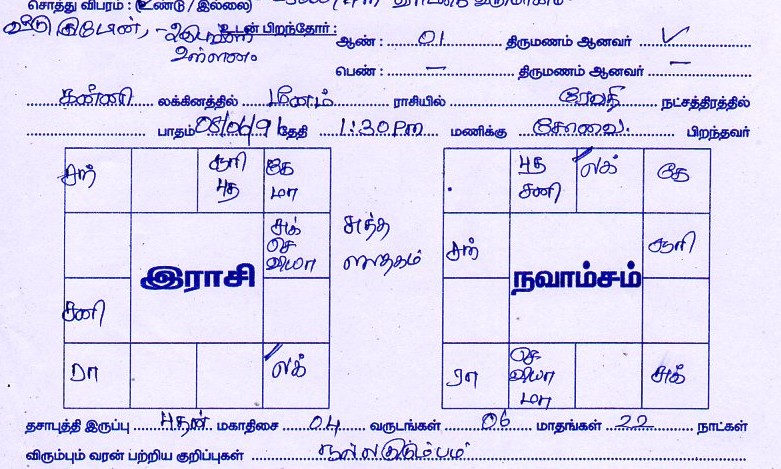 சொத்து விபரம் : (உண்டு / இல்லை)
உடன் பிறந்தோர் :
உள்ளன
ஆண் : 01 திருமணம் ஆனவர் ✓
பெண் : — திருமணம் ஆனவர் —
கன்னி லக்கினத்தில் மீனம் ராசியில் ரேவதி நட்சத்திரத்தில்
பாதம் 08/06/91 தேதி 1:30 PM மணிக்கு கோவை பிறந்தவர்
சந் சூரி கே
புத மா
சுக் சுத்த
செ ஜாதகம்
வியா
இராசி
சனி
ரா லக்
புத லக் கே
சனி
சந் சூரி
நவாம்சம்
ரா செ சுக்
வியா
மா
தசாபுத்தி இருப்பு புதன் மகாதிசை 04 வருடங்கள் 06 மாதங்கள் 22 நாட்கள்
விரும்பும் வரன் பற்றிய குறிப்புகள் நல்லகுடும்பம்